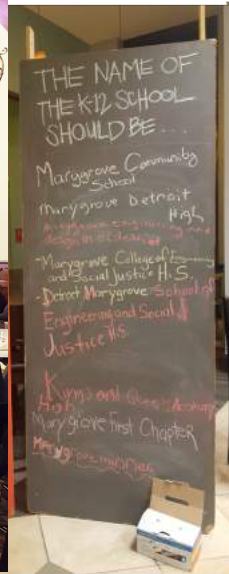 THE NAME OF
THE K-12 SCHOOL
SHOULD BE...
Marygrove Community
School
Marygrove Detroit
High
Marygrove engineering and
design
-Marygrove College of
and Social Justice H.S.
-Detroit Marygrove School of
Engineering and Social
Justice H.S.
Kings and Queens Academy
High
Marygrove First Chapter
Marygrove